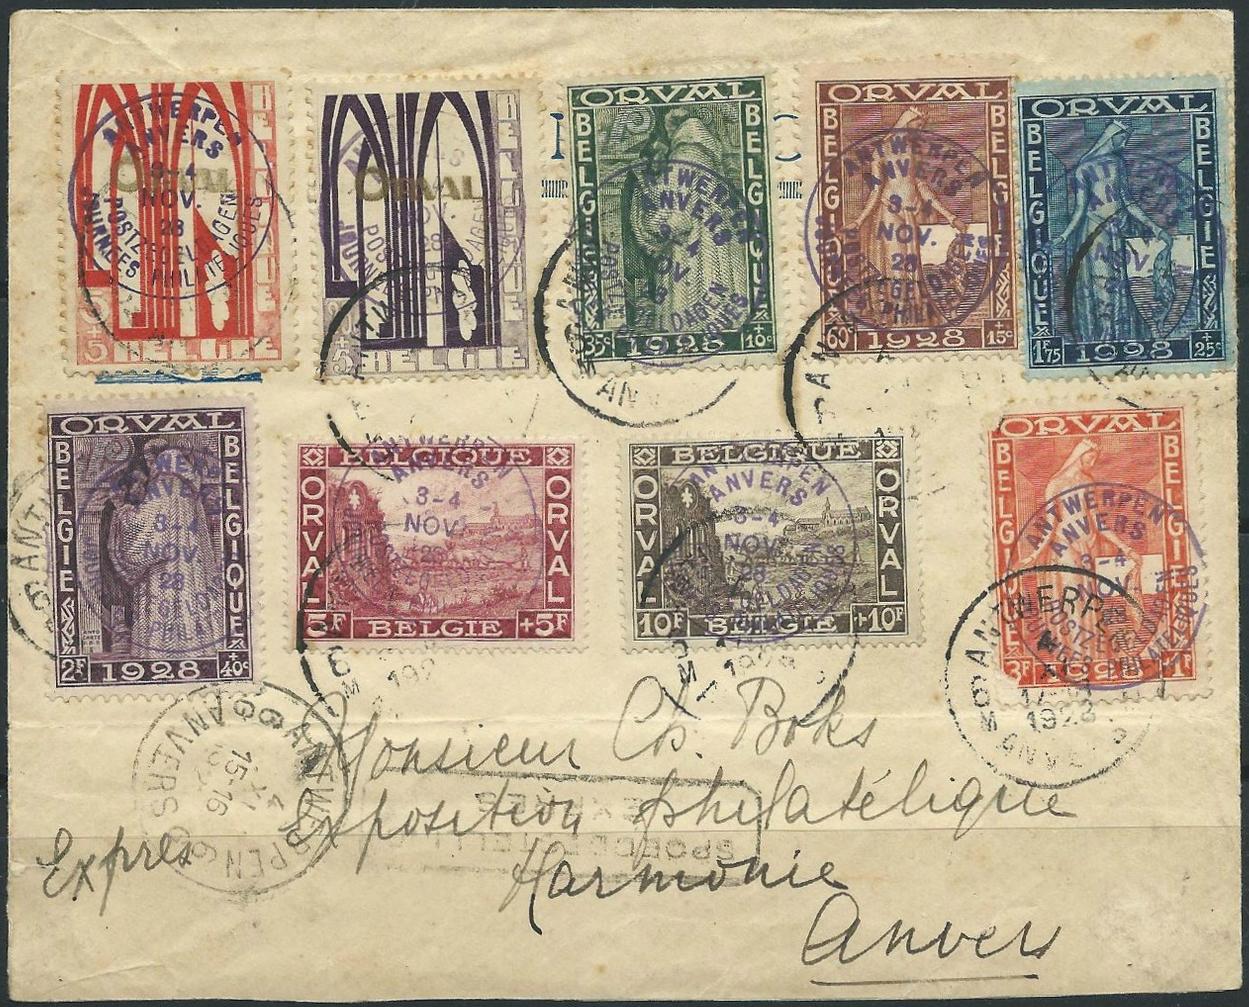 ORVAL
BELGIE
BELGIQUE
5+5
ANTWERPEN
ANVERS
3-4
NOV.
28
POSTZEGELDAGEN
JOURNEES PHILATELIQUES
ORVAL
BELGIE
BELGIQUE
ORVAL
BELGIE
BELGIQUE
35c
1928
+10c
ANTWERPEN
ANVERS
ORVAL
BELGIE
BELGIQUE
60c
1928
+15c
ANTWERPEN
ANVERS
3-4
NOV.
28
ORVAL
BELGIQUE
BELGIE
1F75
1928
+25c
ORVAL
BELGIE
BELGIQUE
2F
1928
+40c
3-4
NOV.
28
BELGIQUE
ORVAL
ORVAL
5F
BELGIE
+5F
ANTWERPEN
ANVERS
3-4
NOV.
28
BELGIQUE
ORVAL
ORVAL
10F
BELGIE
+10F
ANTWERPEN
ANVERS
3-4
NOV.
28
ORVAL
BELGIQUE
BELGIE
3F
1928
+1F
ANTWERPEN
ANVERS
3-4
NOV.
6 ANTWERPEN
1928
ANVERS
ANTWERPEN 6
4 XI
15-16
ANVERS 6
Monsieur Ch. Boks
Exposition philatélique
EXPRES
SPOEDBESTELLING
Expres
Harmonie
Anvers